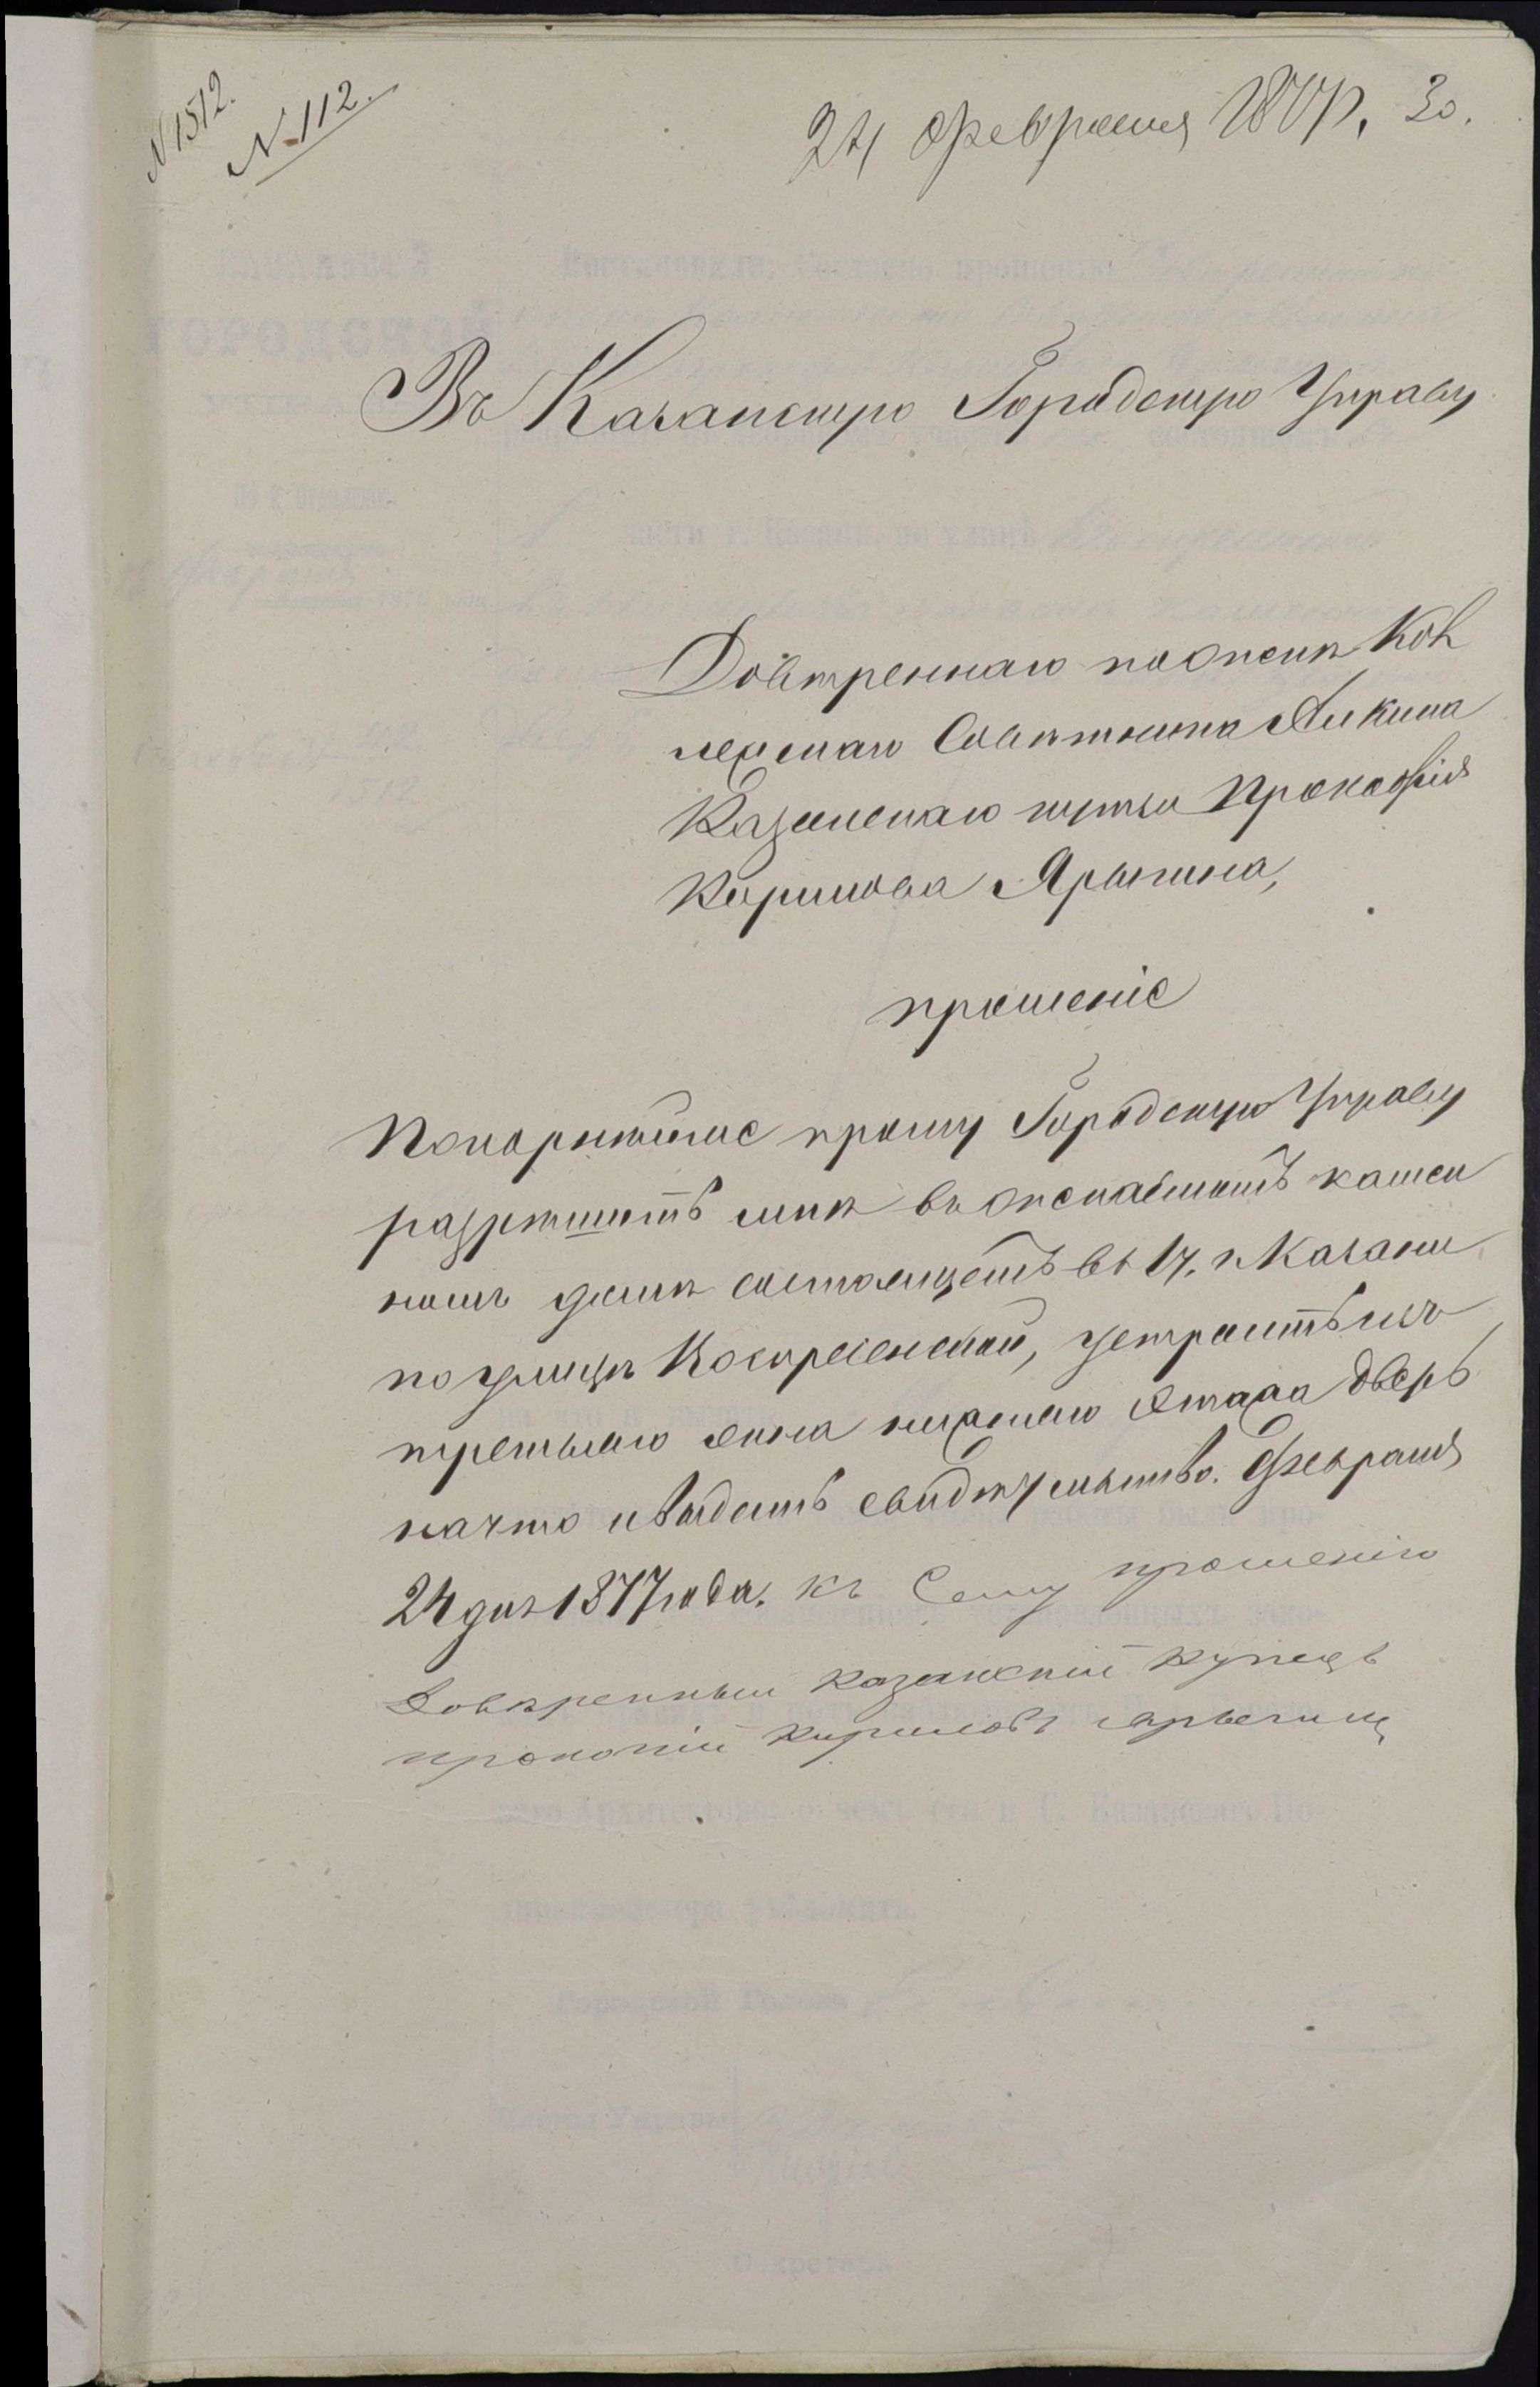 N 1512.
N 112.
24 февраля 1877. 30.
Въ Казанскую Городскую Управу
Довѣреннаго по опекѣ Кол
лежскаго Совѣтника Аикина
Казанскаго купца Прокофія
Кирилова Ярыгина,
прошеніе
Покорнѣйше прошу Городскую Управу
разрѣшить мнѣ въ опекаемомъ камен
номъ домѣ состоящемъ въ 1 ч. г. Казани
по улицѣ Воскресенской, устроить изъ
третьяго окна нижняго этажа дверь
на что и выдать свидѣтельство. Февраля
24 дня 1877 года. къ Сему прошенію
Довѣренный казанскій купецъ
прокопій Кириловъ Ярыгинъ